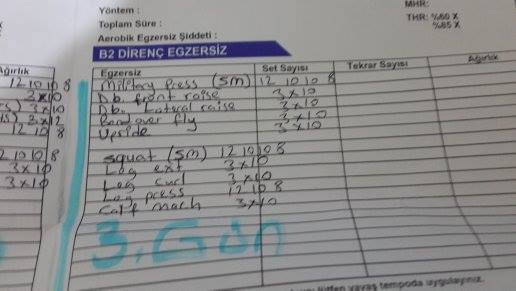 Yöntem :
Toplam Süre :
Aerobik Egzersiz Şiddeti :
MHR:
THR: %60 X
%85 X
B2 DİRENÇ EGZERSİZ
Egzersiz Set Sayısı Tekrar Sayısı Ağırlık
Military Press (sm) 12 10 10 8
Db. front raise 3x10
Db. Lateral raise 3x10
Bend over fly 3x10
Upride 3x10
squat (sm) 12 10 10 8
Leg ext 3x10
Leg curl 3x10
Leg press 12 10 8
Calf mach 3x10
3. Gün
Ağırlık
12 10 10 8
3x10
3x10
3x12
12 10 8
12 10 10 8
3x10
3x10
lütfen yavaş tempoda uygulayınız.